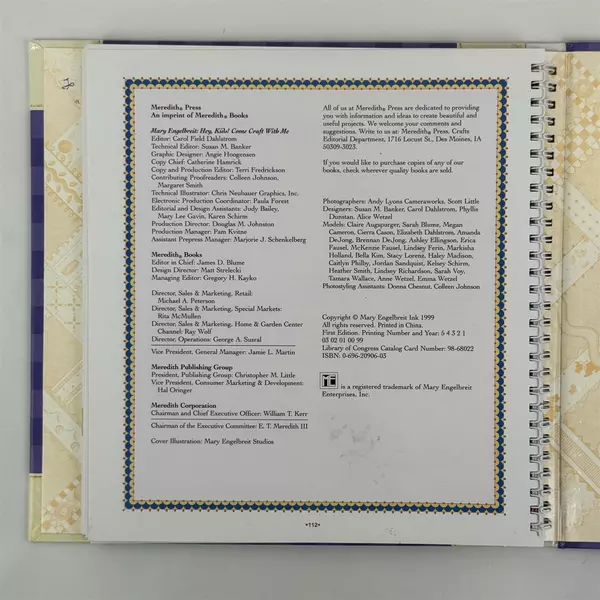 Meredith® Press
An imprint of Meredith® Books
Mary Engelbreit: Hey, Kids! Come Craft With Me
Editor: Carol Field Dahlstrom
Technical Editor: Susan M. Banker
Graphic Designer: Angie Hoogensen
Copy Chief: Catherine Hamrick
Copy and Production Editor: Terri Fredrickson
Contributing Proofreaders: Colleen Johnson,
Margaret Smith
Technical Illustrator: Chris Neubauer Graphics, Inc.
Electronic Production Coordinator: Paula Forest
Editorial and Design Assistants: Judy Bailey,
Mary Lee Gavin, Karen Schirm
Production Director: Douglas M. Johnston
Production Manager: Pam Kvitne
Assistant Prepress Manager: Marjorie J. Schenkelberg
Meredith® Books
Editor in Chief: James D. Blume
Design Director: Matt Strelecki
Managing Editor: Gregory H. Kayko
Director, Sales & Marketing, Retail:
Michael A. Peterson
Director, Sales & Marketing, Special Markets:
Rita McMullen
Director, Sales & Marketing, Home & Garden Center
Channel: Ray Wolf
Director, Operations: George A. Susral
Vice President, General Manager: Jamie L. Martin
Meredith Publishing Group
President, Publishing Group: Christopher M. Little
Vice President, Consumer Marketing & Development:
Hal Oringer
Meredith Corporation
Chairman and Chief Executive Officer: William T. Kerr
Chairman of the Executive Committee: E. T. Meredith III
Cover Illustration: Mary Engelbreit Studios
All of us at Meredith® Press are dedicated to providing
you with information and ideas to create beautiful and
useful projects. We welcome your comments and
suggestions. Write to us at: Meredith® Press, Crafts
Editorial Department, 1716 Locust St., Des Moines, IA
50309-3023.
If you would like to purchase copies of any of our
books, check wherever quality books are sold.
Photographers: Andy Lyons Cameraworks, Scott Little
Designers: Susan M. Banker, Carol Dahlstrom, Phyllis
Dunstan, Alice Wetzel
Models: Claire Augspurger, Sarah Blume, Megan
Cameron, Cierra Cason, Elizabeth Dahlstrom, Amanda
DeJong, Brennao DeJong, Ashley Ellingson, Erica
Fausel, McKenzie Fausel, Lindsey Ferin, Markisha
Holland, Bella Kim, Stacy Lorenz, Haley Madison,
Caitlyn Philby, Jordan Sandquist, Kelsey Schirm,
Heather Smith, Lindsey Richardson, Sarah Voy,
Tamara Wallace, Anne Wetzel, Emma Wetzel
Photostyling Assistants: Donna Chesnut, Colleen Johnson
Copyright © Mary Engelbreit Ink 1999
All rights reserved. Printed in China.
First Edition. Printing Number and Year: 5 4 3 2 1
03 02 01 00 99
Library of Congress Catalog Card Number: 98-68022
ISBN: 0-696-20906-03
is a registered trademark of Mary Engelbreit
Enterprises, Inc.
•112•